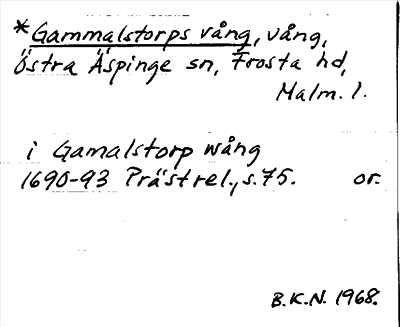 *Gammalstorps vång, vång,
Östra Äspinge sn, Frosta hd,
Malm. l.
i Gamalstorp wång
1690-93 Prästrel., s. 75. or.
B.K.N. 1968.